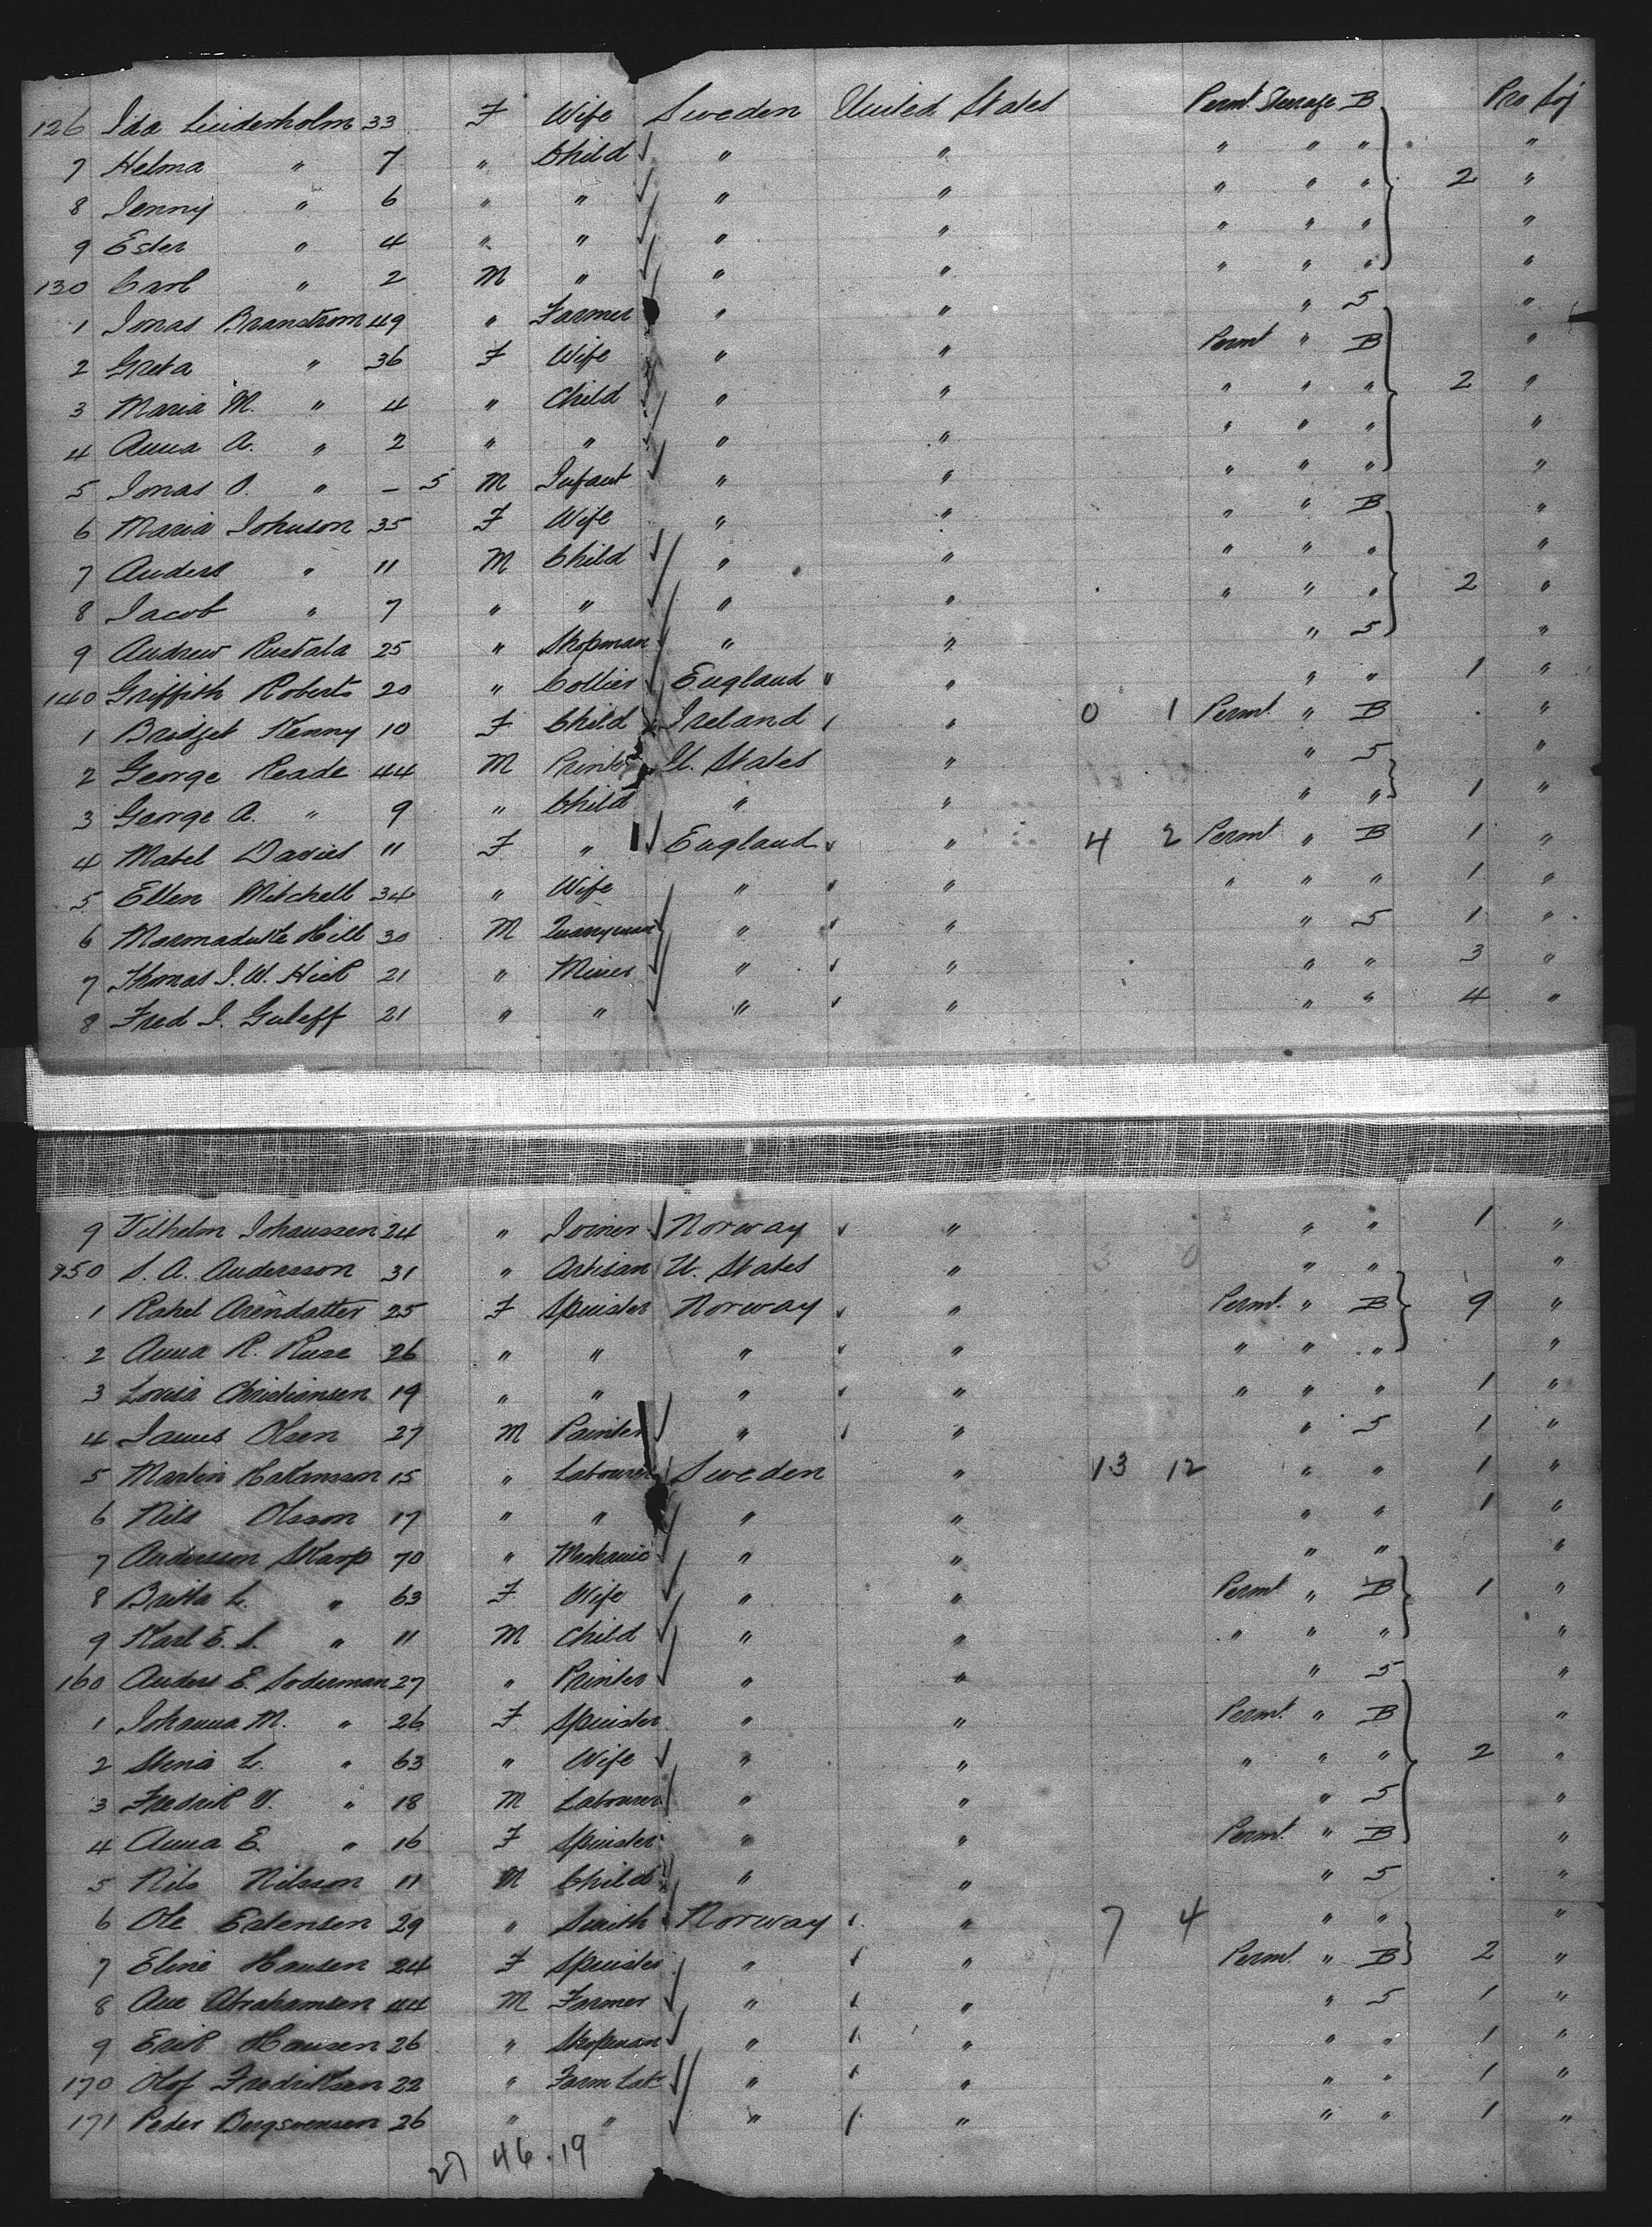 126 Ida Linderholm 33 F Wife Sweden United States Permt. Steerage B Pro Soj
7 Helma " 7 " Child " " " " " "
8 Jenny " 6 " " " " " " " 2 "
9 Ester " 4 " " " " " " " "
130 Carl " 2 M " " " " " " "
1 Jonas Branstrom 49 " Farmer " " " 5 "
2 Greta " 36 F Wife " " Permt " B "
3 Maria M. " 4 " Child " " " " " 2 "
4 Anna A. " 2 " " " " " " " "
5 Jonas O. " – 5 M Infant " " " " " "
6 Maria Johnson 35 F Wife " " " " B "
7 Anders " 11 M Child " " " " " "
8 Jacob " 7 " " " " " " " 2 "
9 Andrew Rustala 25 " Shopman " " " 5 "
140 Griffith Roberts 20 " Collier England " " " 1 "
1 Bridget Kenny 10 F Child Ireland " 0 1 Permt. " B "
2 George Reade 44 M Printer U. States " " 5 "
3 George A. " 9 " Child " " " " 1 "
4 Mabel Davies 11 F " England " 4 2 Permt " B 1 "
5 Ellen Mitchell 34 " Wife " " " " " 1 "
6 Marmaduke Hill 30 M Quarryman " " " 5 1 "
7 Thomas J. W. Hick 21 " Miner " " " " 3 "
8 Fred J. 21 " " " " " " 4 "
9 Vilhelm Johanssen 24 " Joiner Norway " " " 1 "
150 S. A. Andersson 31 " Artisan U. States " 3 0 " " "
1 Rahel Arendatter 25 F Spinster Norway " Permt. " B 9 "
2 Anna R. Ruse 26 " " " " " " " "
3 Lovisa Christiansen 19 " " " " " " " 1 "
4 James Olsen 27 M Painter " " " 5 1 "
5 Martin Hakansson 15 " Labourer Sweden " 13 12 " " 1 "
6 Nils Olsson 17 " " " " " " 1 "
7 Andersson Skarp 70 " Mechanic " " " " "
8 Britta L. " 63 F Wife " " Permt " B 1 "
9 Karl E. S. " 11 M Child " " " " " "
160 Anders E. Soderman 27 " Printer " " " 5 "
1 Johanna M. " 26 F Spinster " " Permt. " B "
2 Stina L. " 63 " Wife " " " " " 2 "
3 Fredrik V. " 18 M Labourer " " " 5 "
4 Anna E. " 16 F Spinster " " Permt. " B "
5 Nils Nilsson 11 M Child " " " 5 "
6 Ole Estensen 29 " Smith Norway " 7 4 " " "
7 Eline Hansen 24 F Spinster " " Permt. " B 2 "
8 Ave Abrahamsen 44 M Farmer " " " 5 1 "
9 Erik Hansen 26 " Shopman " " " " 1 "
170 Olof Fredriksen 22 " Farm Labr " " " " 1 "
171 Peder Bergsvensen 26 " " " " " " 1 "
27 46 . 19